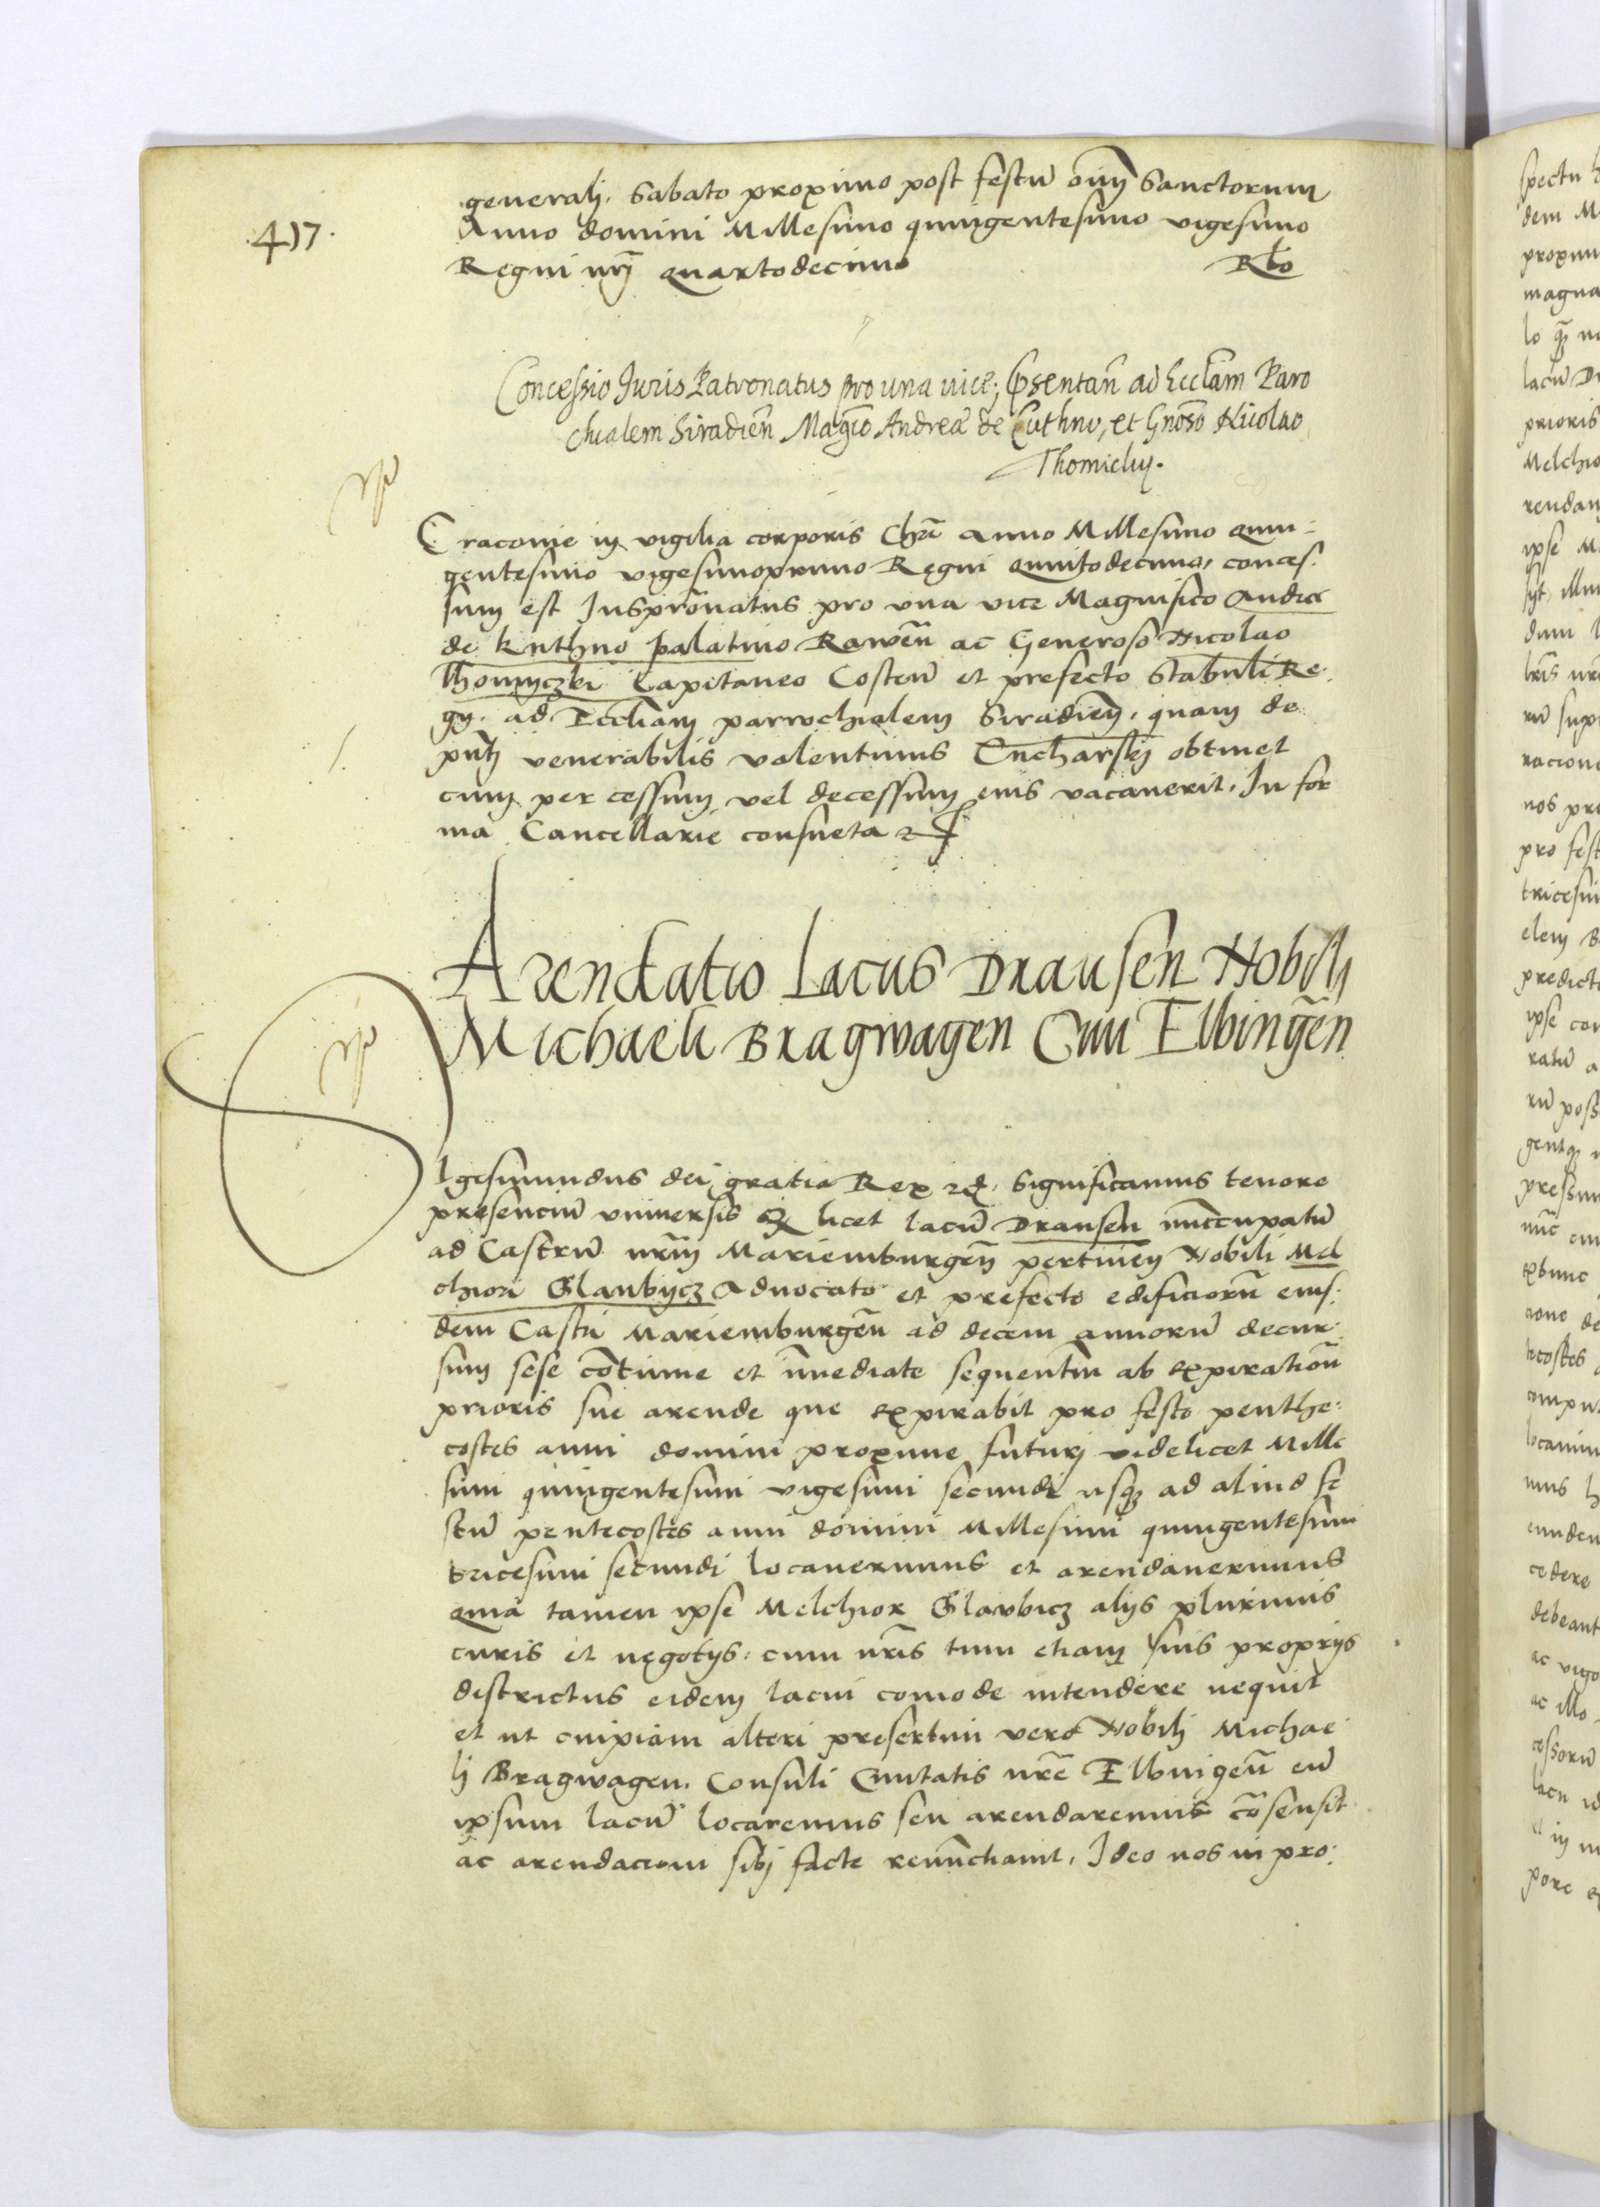 generalj. Sabato proximo post festu̅ om̅j Sanctorum
417.
Anno domini Millesimo quingentesimo vigesimo
Regni nr̅j quartodecimo Rlo
Concessio Juris Patronatus pro una vice, p̅sentan̅ ad Eccl̅am Paro
chialem Siradien̅ Mag̅co Andreæ de Cuthno, et Gn̅oso Nicolao
Thomiciy.
Cracovie in vigilia corporis Chr̅i anno Millesimo quin-
gentesimo vigesimoprimo Regni quintodecimo, conces-
sum est Juspr̅onatus pro una vice Magnifico Andree
de Kuthno palatino Rawen̅ ac Generoso Nicolao
Thomyczki Capitaneo Costen̅ et prefecto Stabuli Re-
gij. ad Eccl̅iam parrochialem Siradien̅. quam de
pn̅tj venerabilis valentinus obtinet
cum per cessum vel decessum eius vacaverit. In for
ma Cancellarie consueta
Arendatio Lacus Drausen Nobili
Michaeli Bragwagen Civi Elbingen̅
Sigesimundus dei gratia Rex &c. Significamus tenore
presenciu̅ universis Qz licet lacu̅ Drausen nu̅ccupatu̅
ad Castru̅ nr̅m Mariemburgen̅ pertinen̅ Nobili Mel
chiori Glaubijcz Advocato et prefecto edificioru̅ eius-
dem Castri Mariemburgen̅ ad decem annoru̅ decur-
sum sese co̅tinue et i̅mediate sequentiu̅ ab expiratio̅n
prioris sue arende que expirabit pro festo penthe-
costes anni domini proxime futurj videlicet Mille
simi quingentesimi vigesimi secundi usqz ad aliud fe
stu̅ pentecostes anni domini Millesimi quingentesimi
tricesimi secundi locaverimus et arendaverimus
quia tamen ipse Melchior Glaubicz alijs plurimis
curis et negotijs. cum nr̅is tum etiam suis proprijs
districtus eidem lacui comode intendere nequit
et ut cuipiam alteri presertim vero Nobilj Michae
lj Bragwagen. Consuli Civitatis nr̅e Elbingen̅ eu̅
ipsum lacu̅ locaremus seu arendaremus co̅sensit
ac arendacioni sibj facte renu̅ctiavit. Ideo nos in pro-